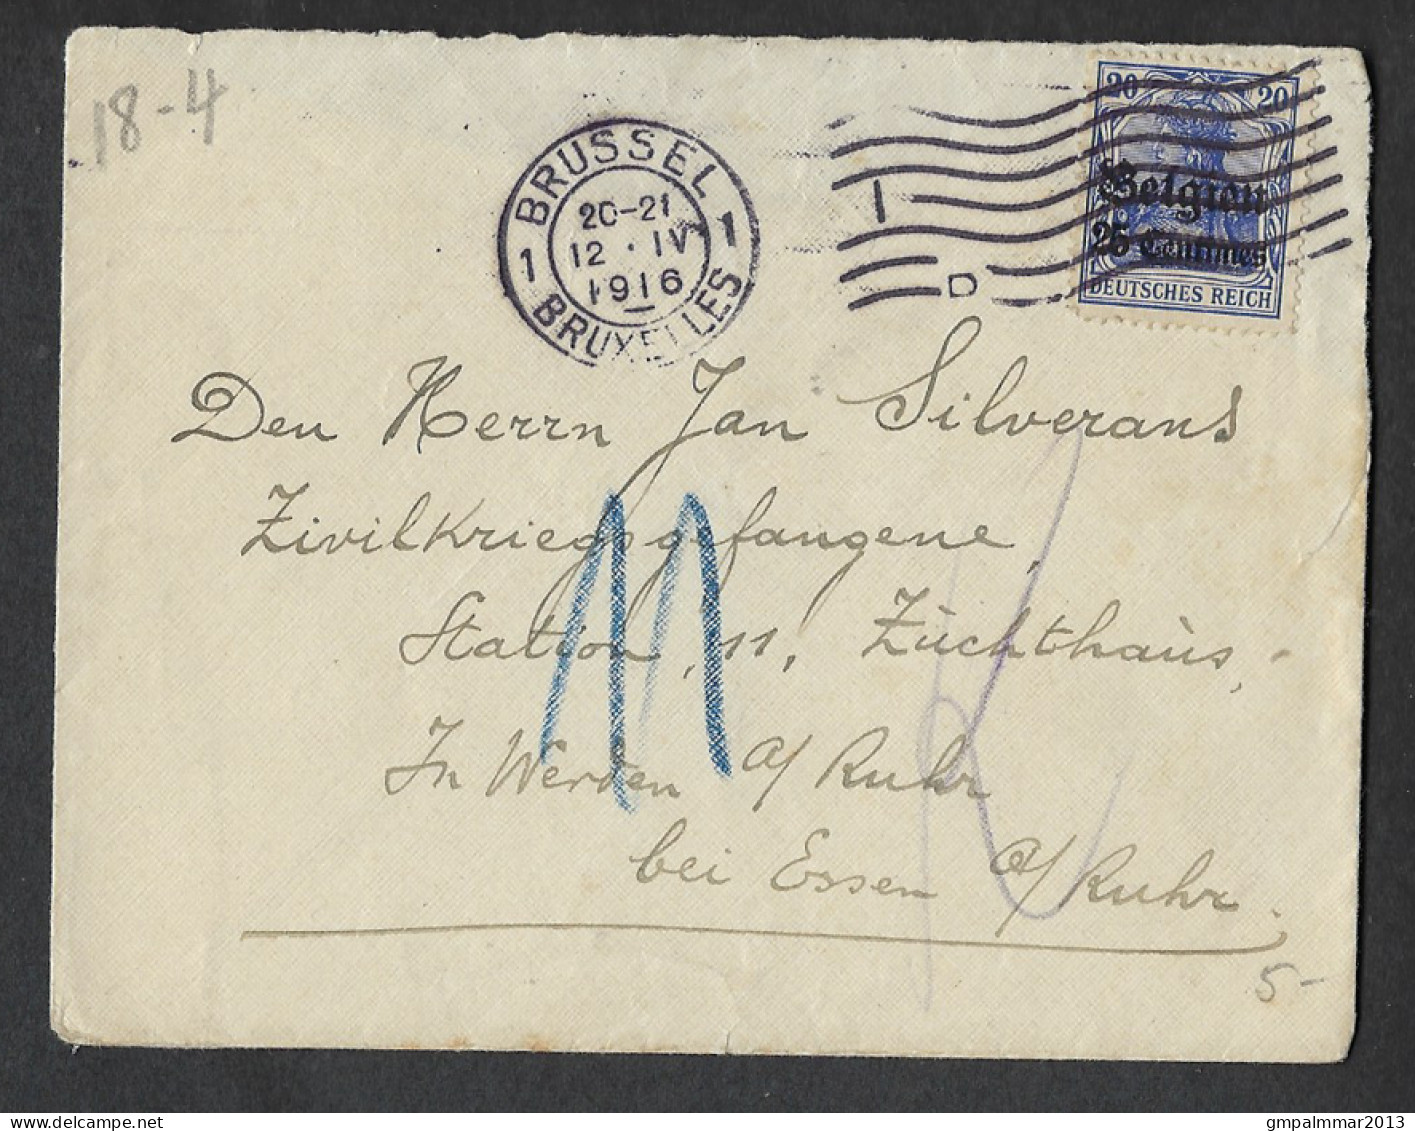 18-4
BRUSSEL
20-21
12 · IV
1916
1 1
BRUXELLES
1
D
20 20
Belgien
25 Centimes
DEUTSCHES REICH
Den Herrn Jan Silverans
Zivilkriegsgefangene,
Station, 11, Züchthaùs,
In Werden a/ Ruhr
bei Essen a/ Ruhr.
5-
gmpalmmar2013